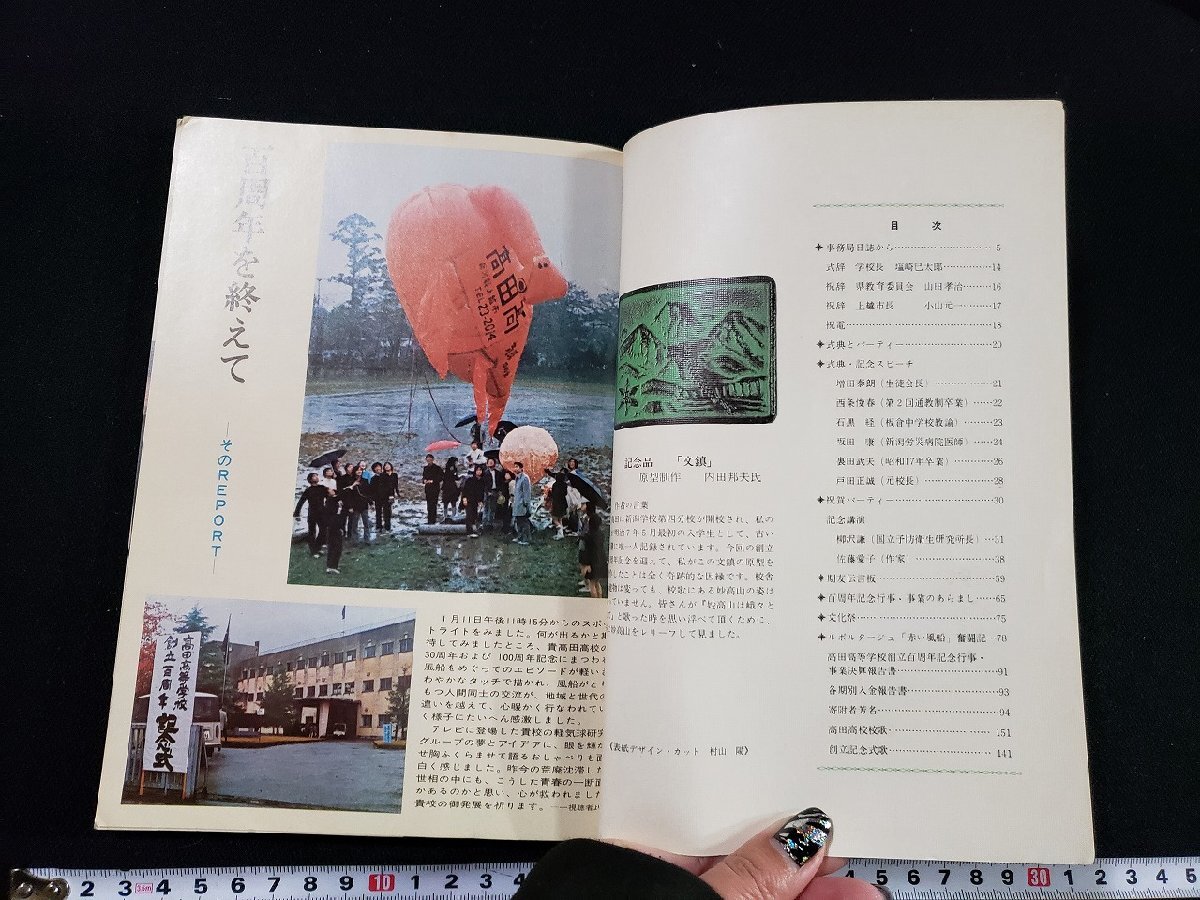 百周年を終えて
―そのREPORT―
高田高
TEL.23-2014
高田高等学校
創立百周年
記念式
1月11日午後11時15分からのスポッ
トライトをみました。何が出るかと期
待してみましたところ、貴高田高校の
50周年および100周年記念にまつわる
風船をめぐってのエピソードが軽い
わやかなタッチで描かれ、風船がと
もつ人間同士の交流が、地域と世代の
違いを越えて、心暖かく行なわれてい
く様子にたいへん感激しました。
テレビに登場した貴校の軽気球研究
グループの夢とアイデアに、眼を輝か
せ胸ふくらませて語るおしゃべりも面
白く感じました。昨今の荒廃沈滞した
世相の中にも、こうした青春の一断面
があるのかと思い、心が救われました
貴校の御発展を祈ります。――視聴者より
記念品 「文鎮」
原型制作 内田邦夫氏
作者の言葉
に新潟学校第四分校が開校され、私の
明治7年5月最初の入学生として、古い
に唯一人記録されています。今回の創立
年大会を迎って、私がこの文鎮の原型を
したことは全く奇跡的な因縁です。校舎
物は変っても、校歌にある妙高山の姿は
ていません。皆さんが『妙高山は峨々と
』と歌った時を思い浮べて頂くために、
妙高山をレリーフして見ました。
(表紙デザイン・カット 村山 陽)
目次
✦事務局日誌から………………5
式辞 学校長 塩崎巳太郎……………14
祝辞 県教育委員会 山田孝治………16
祝辞 上越市長 小山元一…………17
祝電……………………………18
✦式典とパーティー………………………20
✦式典・記念スピーチ
増田泰朗(生徒会長)……………21
西条俊春(第2回通教制卒業)……22
石黒 経(板倉中学校教諭)………23
坂田 康(新潟労災病院医師)……24
裏田武夫(昭和17年卒業)…………26
戸田正誠(元校長)………………28
✦祝賀パーティー……………………30
記念講演
柳沢謙(国立予防衛生研究所長)…51
佐藤愛子(作家)…………………58
✦朋友伝言板…………………………59
✦百周年記念行事・事業のあらまし……65
✦文化祭……………………………75
✦ルポルタージュ「赤い風船」奮闘記…70
高田高等学校創立百周年記念行事・
事業決算報告書……………………91
各期別入金報告書…………………93
寄附者芳名…………………………94
高田高校校歌………………………151
創立記念式歌………………………141
2 3 4 5 6 7 8 9 10 1 2 3 4
30 1 2 3 4 5